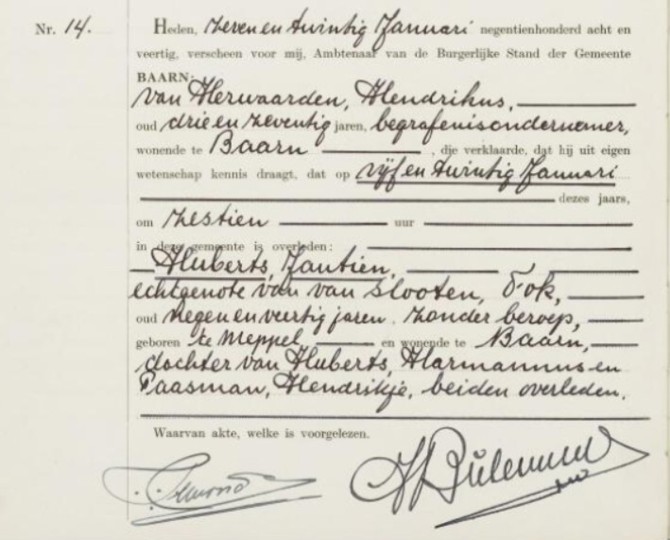 Nr. 14. Heden, zeven en twintig Januari negentienhonderd acht en
veertig, verscheen voor mij, Ambtenaar van de Burgerlijke Stand der Gemeente
BAARN:
van Herwaarden, Hendrikus,
oud drie en zeventig jaren, begrafenisondernemer,
wonende te Baarn, die verklaarde, dat hij uit eigen
wetenschap kennis draagt, dat op vijf en twintig Januari
dezes jaars,
om zestien uur
in deze gemeente is overleden:
Huberts, Jantien,
echtgenote van van Slooten, Fok,
oud negen en veertig jaren, zonder beroep,
geboren te Meppel en wonende te Baarn,
dochter van Huberts, Harmannus en
Paasman, Hendrikje, beiden overleden.
Waarvan akte, welke is voorgelezen.